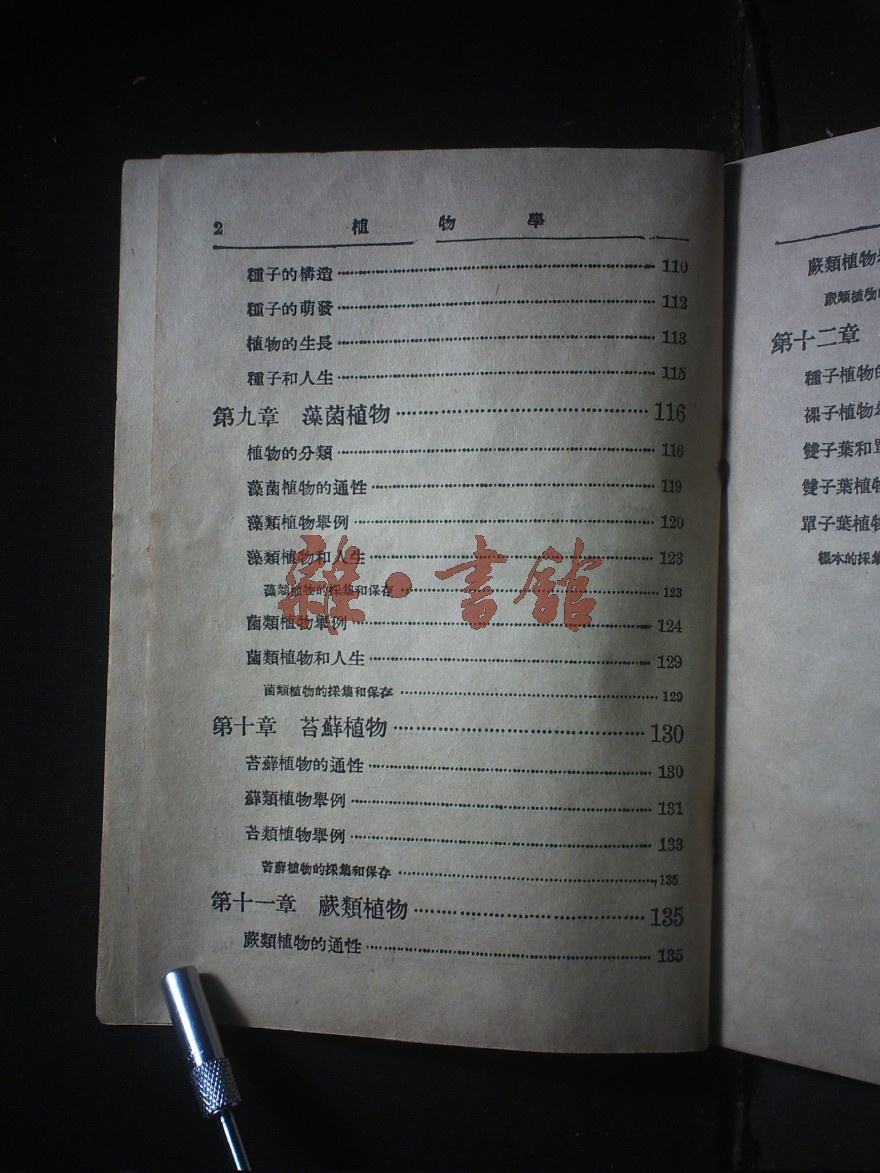 2 植物學
種子的構造 110
種子的萌發 112
植物的生長 113
種子和人生 115
第九章 藻菌植物 116
植物的分類 116
藻菌植物的通性 119
藻類植物舉例 120
藻類植物和人生 123
藻類植物的採集和保存 123
菌類植物舉例 124
菌類植物和人生 129
菌類植物的採集和保存 129
第十章 苔蘚植物 130
苔蘚植物的通性 130
蘚類植物舉例 131
苔類植物舉例 133
苔蘚植物的採集和保存 135
第十一章 蕨類植物 135
蕨類植物的通性 135
雜·書館
蕨類植物
蕨類植物
第十二章
種子植物的
裸子植物
雙子葉和單
雙子葉植物
單子葉植物
標本的採集